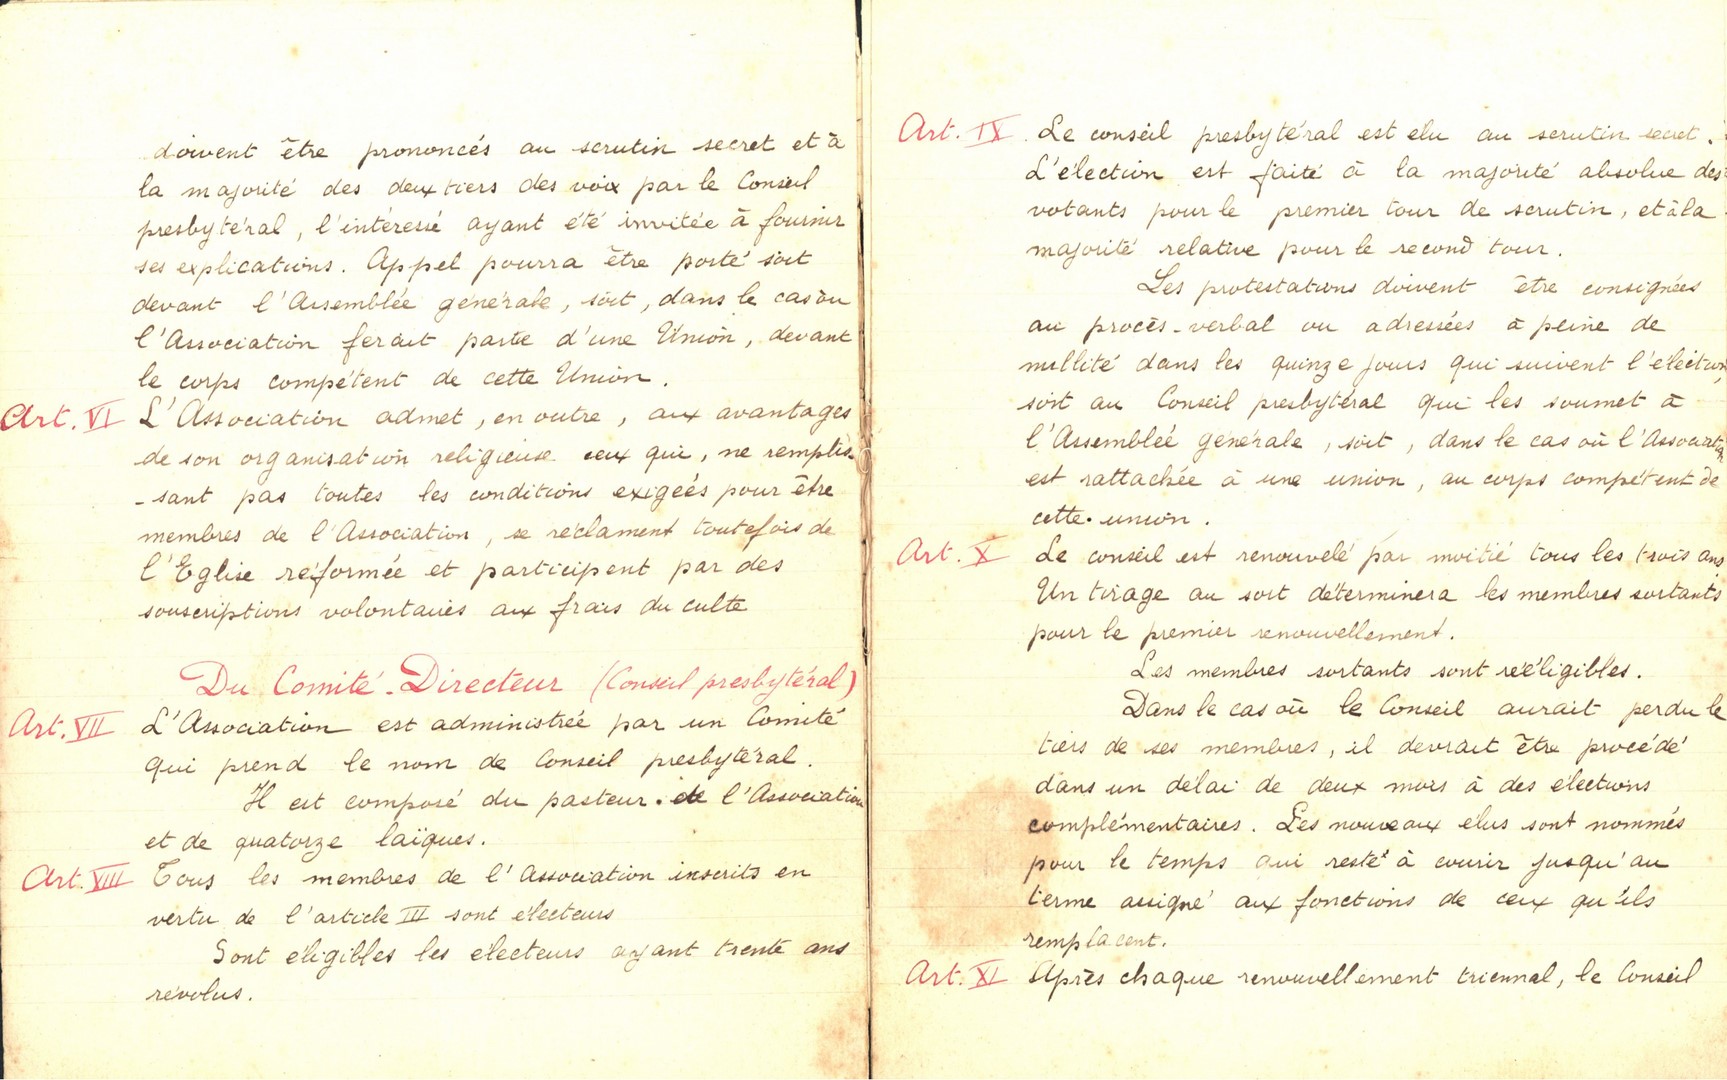 doivent être prononcés au scrutin secret et à
la majorité des deux tiers des voix par le Conseil
presbytéral, l'intéressé ayant été invitée à fournir
ses explications. Appel pourra être porté soit
devant l'Assemblée générale, soit, dans le cas où
l'Association ferait partie d'une Union, devant
le corps compétent de cette Union.
Art. VI L'Association admet, en outre, aux avantages
de son organisation religieuse ceux qui, ne remplis-
-sant pas toutes les conditions exigées pour être
membres de l'Association, se réclament toutefois de
l'Eglise réformée et participent par des
souscriptions volontaires aux frais du culte
Du Comité-Directeur (Conseil presbytéral)
Art. VII L'Association est administrée par un Comité
qui prend le nom de Conseil presbytéral.
Il est composé du pasteur de l'Association
et de quatorze laïques.
Art. VIII Tous les membres de l'Association inscrits en
vertu de l'article III sont électeurs
Sont éligibles les électeurs ayant trente ans
révolus.
Art. IX Le conseil presbytéral est élu au scrutin secret.
L'élection est faite à la majorité absolue des
votants pour le premier tour de scrutin, et à la
majorité relative pour le second tour.
Les protestations doivent être consignées
au procès-verbal ou adressées à peine de
nullité dans les quinze jours qui suivent l'élection,
soit au Conseil presbytéral qui les soumet à
l'Assemblée générale, soit, dans le cas où l'Association
est rattachée à une union, au corps compétent de
cette union.
Art. X Le conseil est renouvelé par moitié tous les trois ans
Un tirage au sort déterminera les membres sortants
pour le premier renouvellement.
Les membres sortants sont rééligibles.
Dans le cas où le Conseil aurait perdu le
tiers de ses membres, il devrait être procédé
dans un délai de deux mois à des élections
complémentaires. Les nouveaux élus sont nommés
pour le temps qui reste à courir jusqu'au
terme assigné aux fonctions de ceux qu'ils
remplacent.
Art. XI Après chaque renouvellement triennal, le Conseil